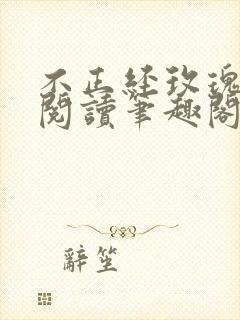 不正经玫瑰
閱讀筆趣閣
辭笙